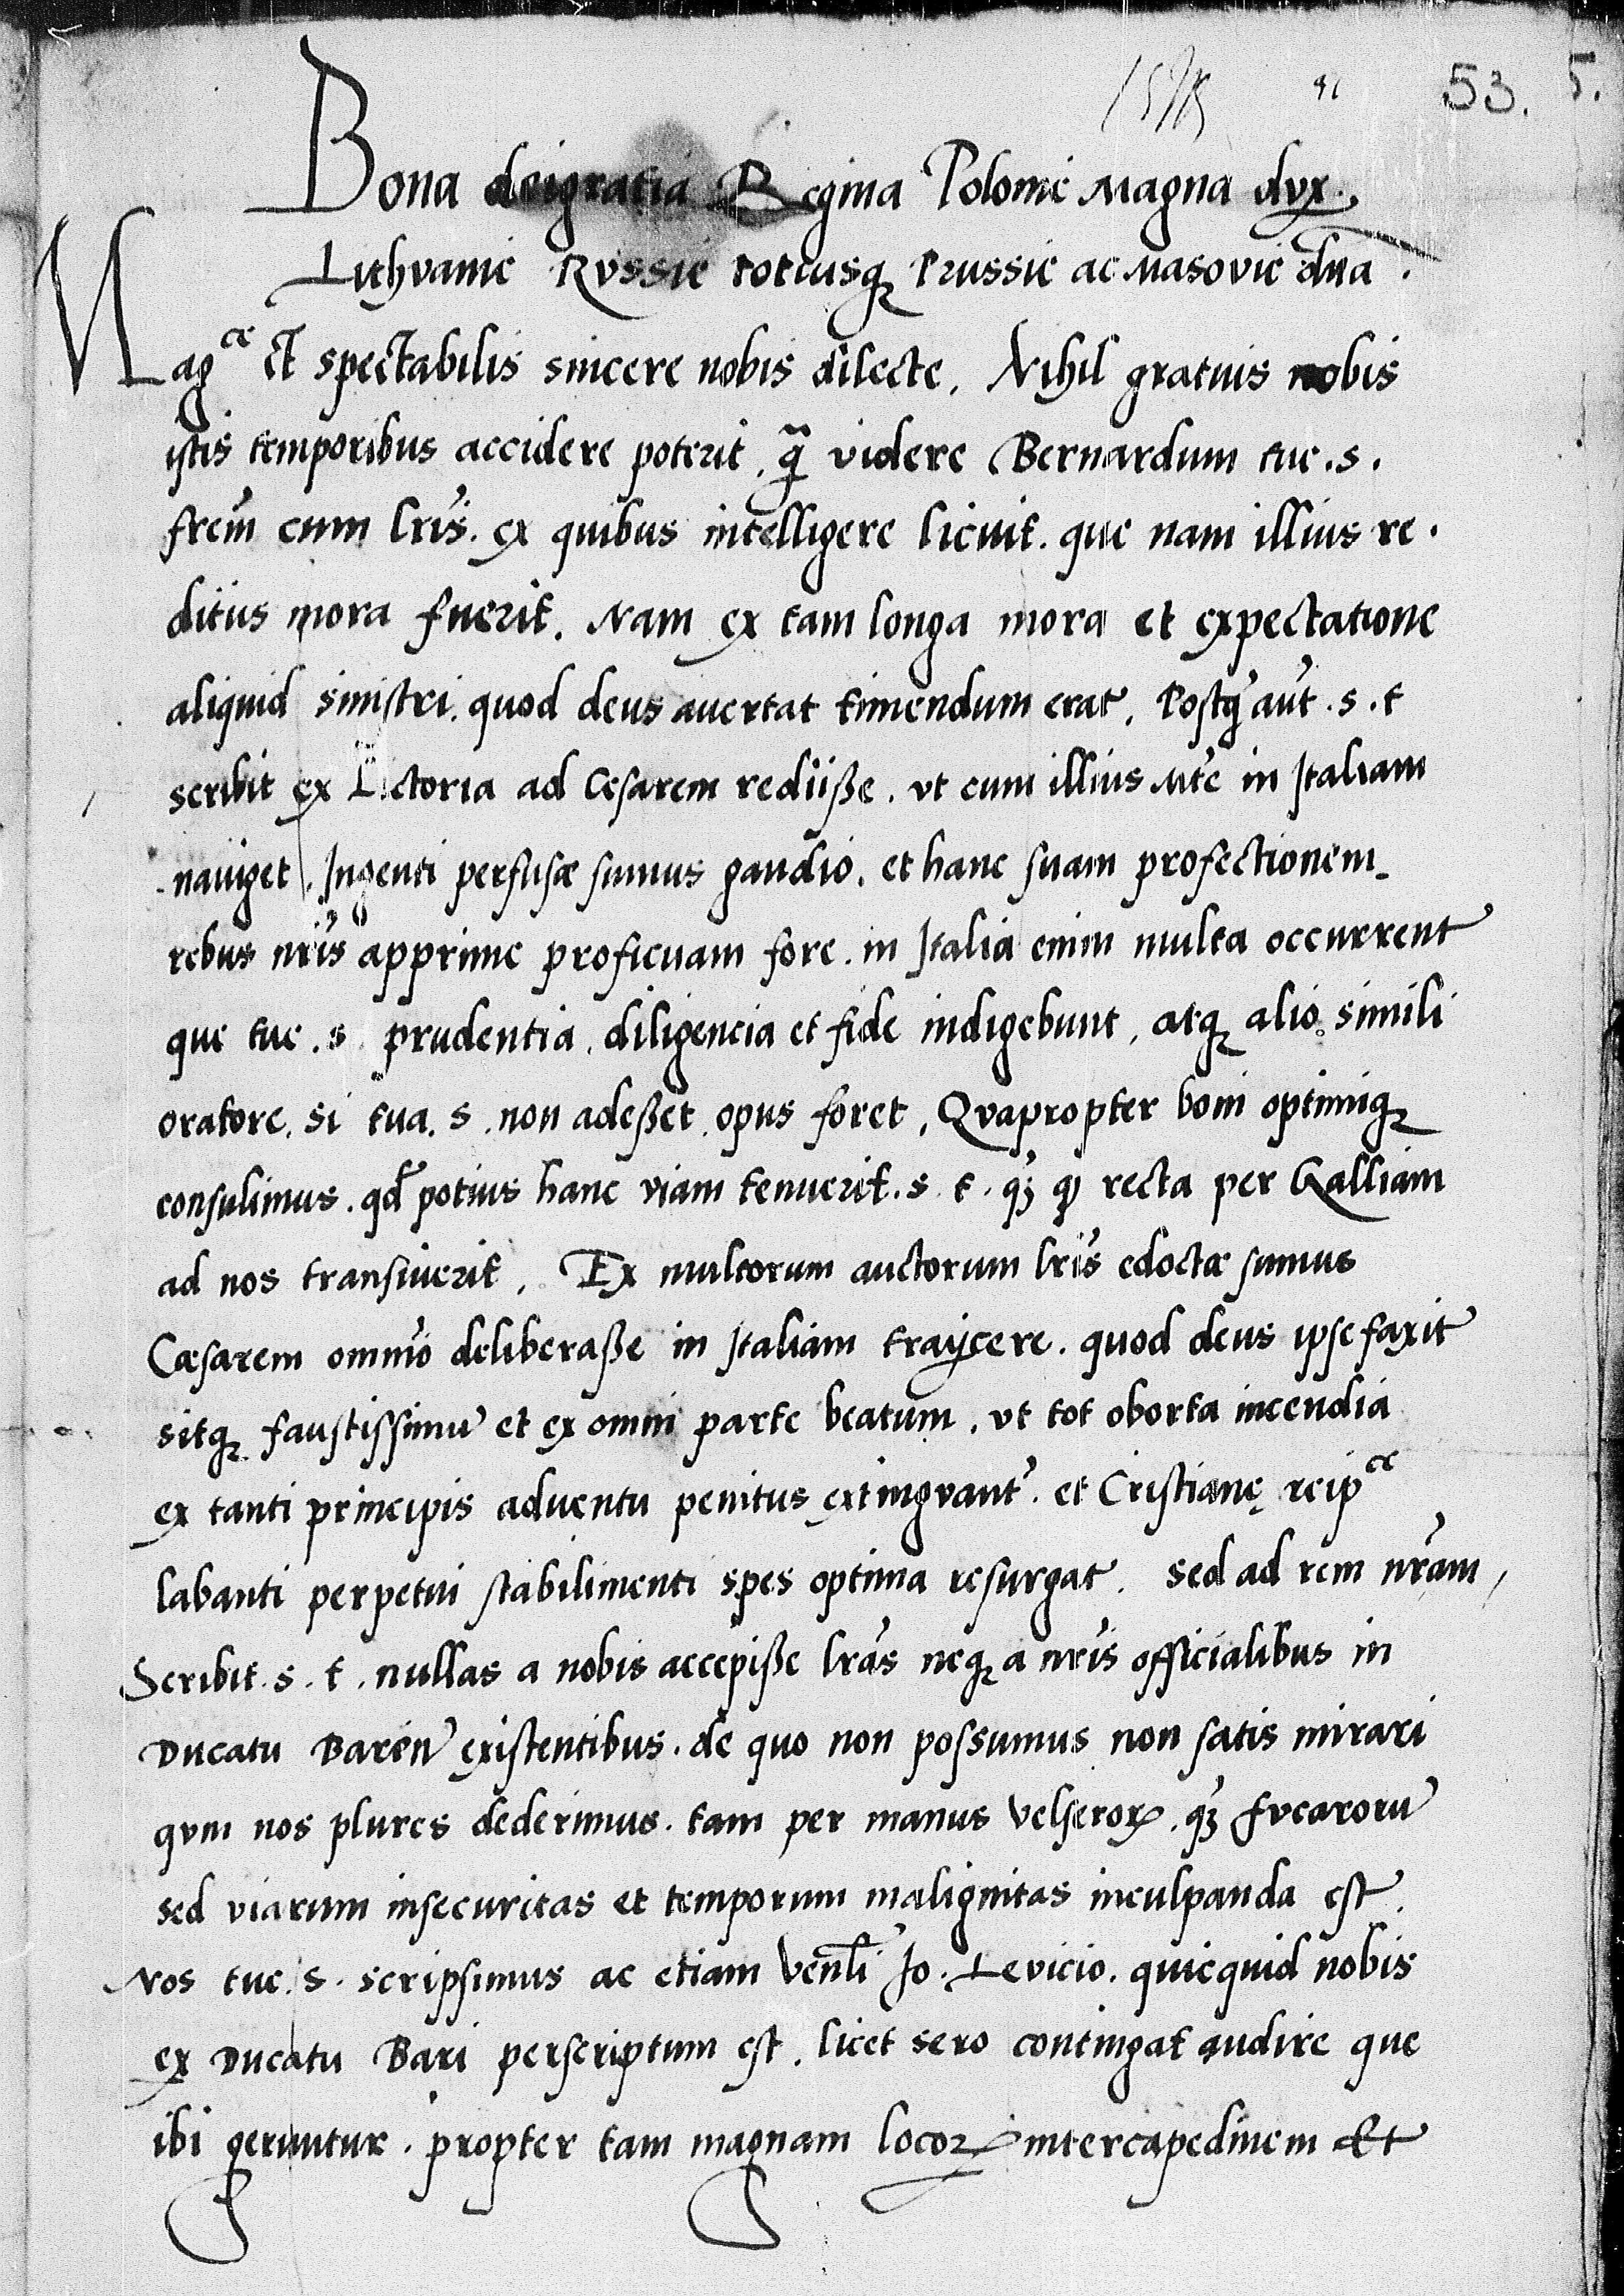 53. 5.
Bona dei gratia Regina Polonie Magna dux
Lithvanie Rvssie totiusq Prussie ac Masovie dna.
Mag^ce et spectabilis sincere nobis dilecte. Nihil gratius nobis
istis temporibus accidere poterit, q̃ videre Bernardum tue. s.
frem̃ cum lris̃. ex quibus intelligere licuit. que nam illius re.
ditus mora fuerit. Nam ex tam longa mora et expectatione
aliquid sinistri. quod deus avertat timendum erat. Postq̃ aut̃. s. t
scribit ex Victoria ad Cesarem rediiße. vt cum illius Mte in Italiam
naviget. Ingenti perfusæ sumus gaudio. et hanc suam profectionem
rebus nris̃ apprime proficuam fore. in Italia enim multa occurrent
que tue. s. prudentia, diligencia et fide indigebunt, atq alio simili
oratore. si tua. s. non adeßet opus foret, Qvapropter boni optimiq
consulimus. qd̃ potius hanc viam tenuerit. s. t. qȝ q recta per Galliam
ad nos transiuerit. Ex multorum auctorum lris̃ edoctæ sumus
Cæsarem omnıõ deliberaße in Italiam trayicere. quod deus ipse faxit
sitq faustissimũ et ex omni parte beatum. vt tot oborta incendia
ex tanti principis adventu penitus extingvant̃. et Cristianę reip^ce
labanti perpetui stabilimenti spes optima resurgat. Sed ad rem nrãm,
Scribit. s. t. nullas a nobis accepiße lrãs neq a nris̃ officialibus in
Ducatu Baren̄ existentibus. de quo non possumus non satis mirari
qvm nos plures dederimus. tam per manus Velseroꝝ. qȝ fvcarorũ
sed viarum insecuritas et temporum malignitas inculpanda est.
Nos tue. s. scripsimus ac etiam Venli̅ Jo. Levicio. quicquid nobis
ex Ducatu Bari perscriptum est. licet sero contingat audire que
ibi geruntur. propter tam magnam locoꝝ intercapedinem Et